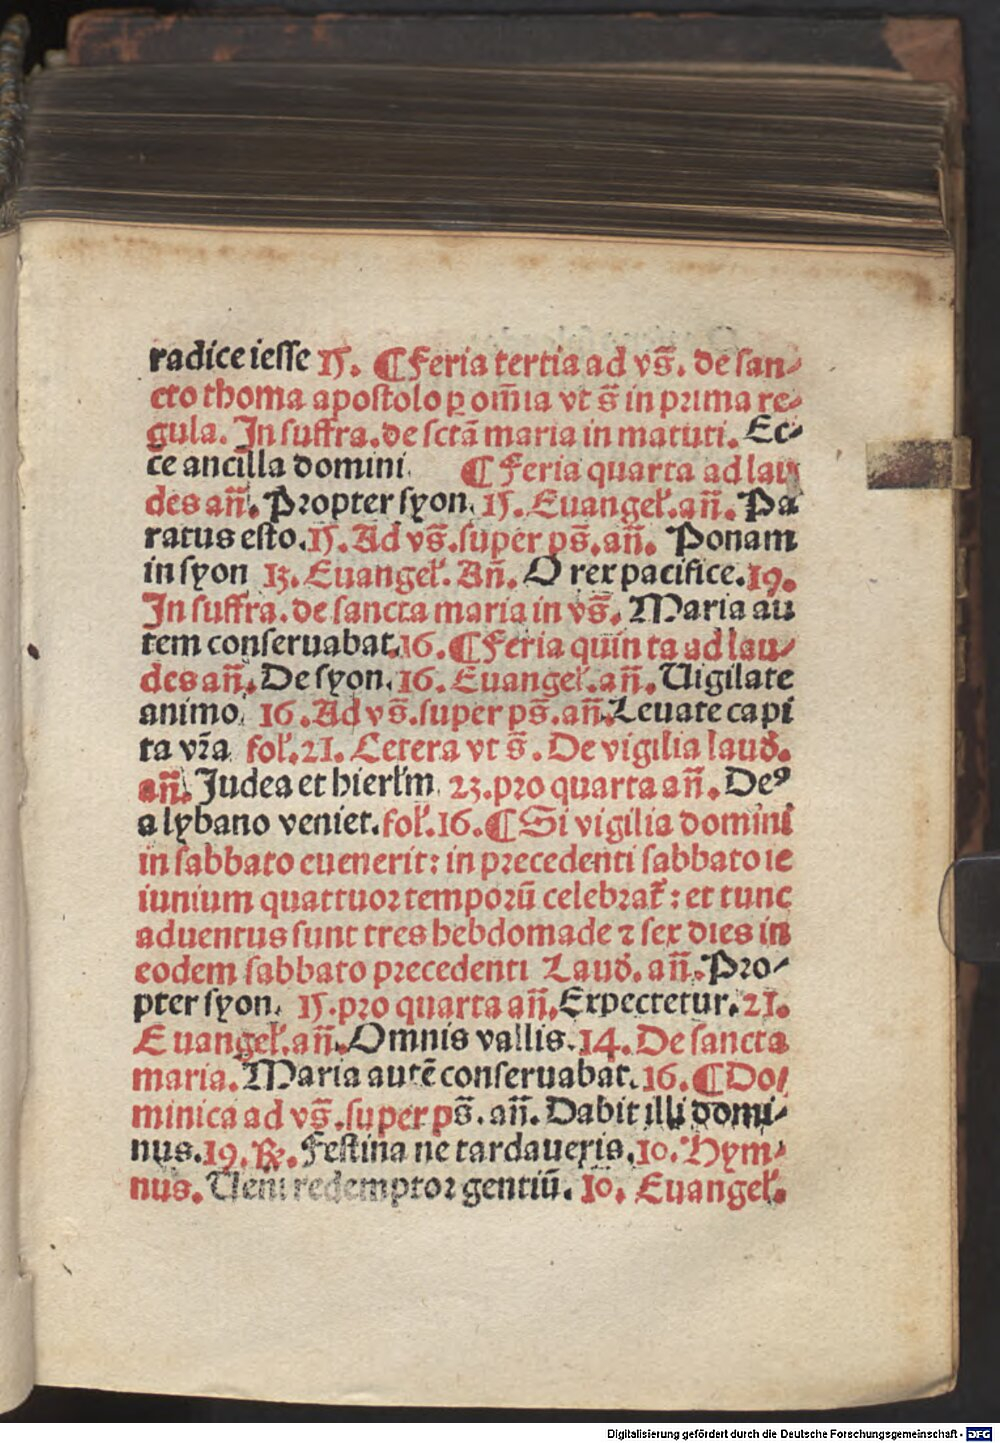 radice iesse 15. ¶ Feria tertia ad vs̄. de san⸗
cto thoma apostolo ꝑ om̄ia vt s̄ in prima re⸗
gula. In suffra. de sctā maria in matuti. Ec⸗
ce ancilla domini. ¶ Feria quarta ad lau
des an̄. Propter syon. 15. Euangeł. an̄. Pa
ratus esto. 15. Ad vs̄. super ps̄. an̄. Ponam
in syon 13. Euangeł. An̄. O rex pacifice. 19.
In suffra. de sancta maria in vs̄. Maria au
tem conseruabat. 16. ¶ Feria quinta ad lau⸗
des an̄. De syon. 16. Euangeł. an̄. Uigilate
animo. 16. Ad vs̄. super ps̄. an̄. Leuate capi
ta vr̄a foł. 21. Cetera vt s̄. De vigilia laud̄.
an̄. Judea et hierłm 23. pro quarta an̄. Deꝰ
a lybano veniet. foł. 16. ¶ Si vigilia domini
in sabbato euenerit: in precedenti sabbato ie
iunium quattuor temporū celebrat̄: et tunc
aduentus sunt tres hebdomade ⁊ sex dies in
eodem sabbato precedenti Laud̄. an̄. Pro⸗
pter syon. 15. pro quarta an̄. Expectetur. 21.
Euangeł. an̄. Omnis vallis. 14. De sancta
maria. Maria autē conseruabat. 16. ¶ Do⸗
minica ad vs̄. super ps̄. an̄. Dabit illi domi⸗
nus. 19. ℞. Festina ne tardaueris. 10. Hym⸗
nus. Ueni redemptor gentiū. 10. Euangeł.
Digitalisierung gefördert durch die Deutsche Forschungsgemeinschaft - DFG